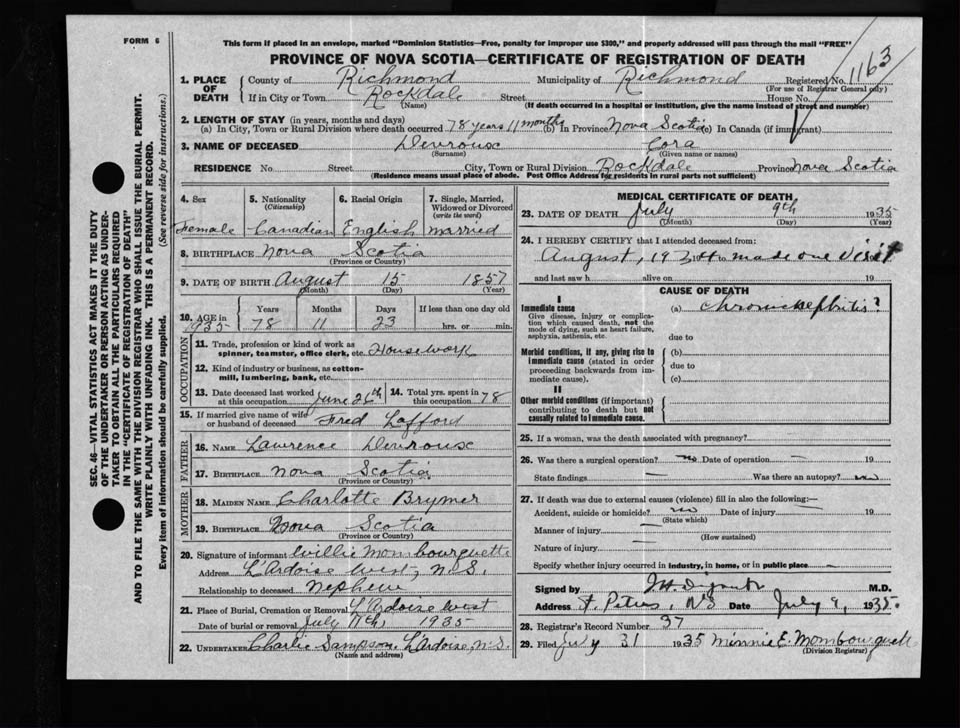 FORM 6
This form if placed in an envelope, marked "Dominion Statistics—Free, penalty for improper use $300," and properly addressed will pass through the mail "FREE"
PROVINCE OF NOVA SCOTIA—CERTIFICATE OF REGISTRATION OF DEATH
1. PLACE OF DEATH County of Richmond Municipality of Richmond Registered No. 1163
(For use of Registrar General only)
If in City or Town Rockdale Street House No.
(Name) (If death occurred in a hospital or institution, give the name instead of street and number)
2. LENGTH OF STAY (in years, months and days)
(a) In City, Town or Rural Division where death occurred 78 years 11 months (b) In Province Nova Scotia (c) In Canada (if immigrant)
3. NAME OF DECEASED Deurouse Cora
(Surname) (Given name or names)
RESIDENCE No. Street City, Town or Rural Division Rockdale Province Nova Scotia
(Residence means usual place of abode. Post Office Address for residents in rural parts not sufficient)
4. Sex 5. Nationality (Citizenship) 6. Racial Origin 7. Single, Married, Widowed or Divorced (write the word)
Female Canadian English married
8. BIRTHPLACE Nova Scotia
(Province or Country)
9. DATE OF BIRTH August 15 1857
(Month) (Day) (Year)
10. AGE in 1935 Years Months Days If less than one day old
78 11 23 hrs. or min.
OCCUPATION
11. Trade, profession or kind of work as spinner, teamster, office clerk, etc. Housework
12. Kind of industry or business, as cotton-mill, lumbering, bank, etc.
13. Date deceased last worked at this occupation June 26th 14. Total yrs. spent in this occupation 78
15. If married give name of wife or husband of deceased Fred Lafford
FATHER
16. NAME Lawrence Deurouse
17. BIRTHPLACE Nova Scotia
(Province or Country)
MOTHER
18. MAIDEN NAME Charlotte Brymer
19. BIRTHPLACE Nova Scotia
(Province or Country)
20. Signature of informant Willie Mombourquette
Address L'Ardoise West, N.S.
Relationship to deceased Nephew
21. Place of Burial, Cremation or Removal L'Ardoise West
Date of burial or removal July 11th, 1935
22. UNDERTAKER Charlie Sampson, L'Ardoise, N.S.
(Name and address)
MEDICAL CERTIFICATE OF DEATH
23. DATE OF DEATH July 9th 1935
(Month) (Day) (Year)
24. I HEREBY CERTIFY that I attended deceased from:
August, 1934 to made one visit
and last saw h alive on 19
CAUSE OF DEATH
I
Immediate cause (a) Chronic nephritis?
Give disease, injury or complication which caused death, not the mode of dying, such as heart failure, asphyxia, asthenia, etc.
due to
Morbid conditions, if any, giving rise to immediate cause (stated in order proceeding backwards from immediate cause).
(b)
due to
(c)
II
Other morbid conditions (if important) contributing to death but not causally related to immediate cause.
25. If a woman, was the death associated with pregnancy?
26. Was there a surgical operation? no Date of operation — 19
State findings — Was there an autopsy? no
27. If death was due to external causes (violence) fill in also the following:—
Accident, suicide or homicide? no Date of injury — 19
(State which)
Manner of injury —
(How sustained)
Nature of injury —
Specify whether injury occurred in industry, in home, or in public place —
Signed by M.D.
Address St. Peters, NS Date July 9, 1935.
28. Registrar's Record Number 37
29. Filed July 31 1935 Minnie E. Mombourquette
(Division Registrar)
SEC. 46—VITAL STATISTICS ACT MAKES IT THE DUTY
OF THE UNDERTAKER OR PERSON ACTING AS UNDER-
TAKER TO OBTAIN ALL THE PARTICULARS REQUIRED
IN THE "CERTIFICATE OF REGISTRATION OF DEATH"
AND TO FILE THE SAME WITH THE DIVISION REGISTRAR WHO SHALL ISSUE THE BURIAL PERMIT.
WRITE PLAINLY WITH UNFADING INK. THIS IS A PERMANENT RECORD.
Every item of information should be carefully supplied. (See reverse side for instructions.)